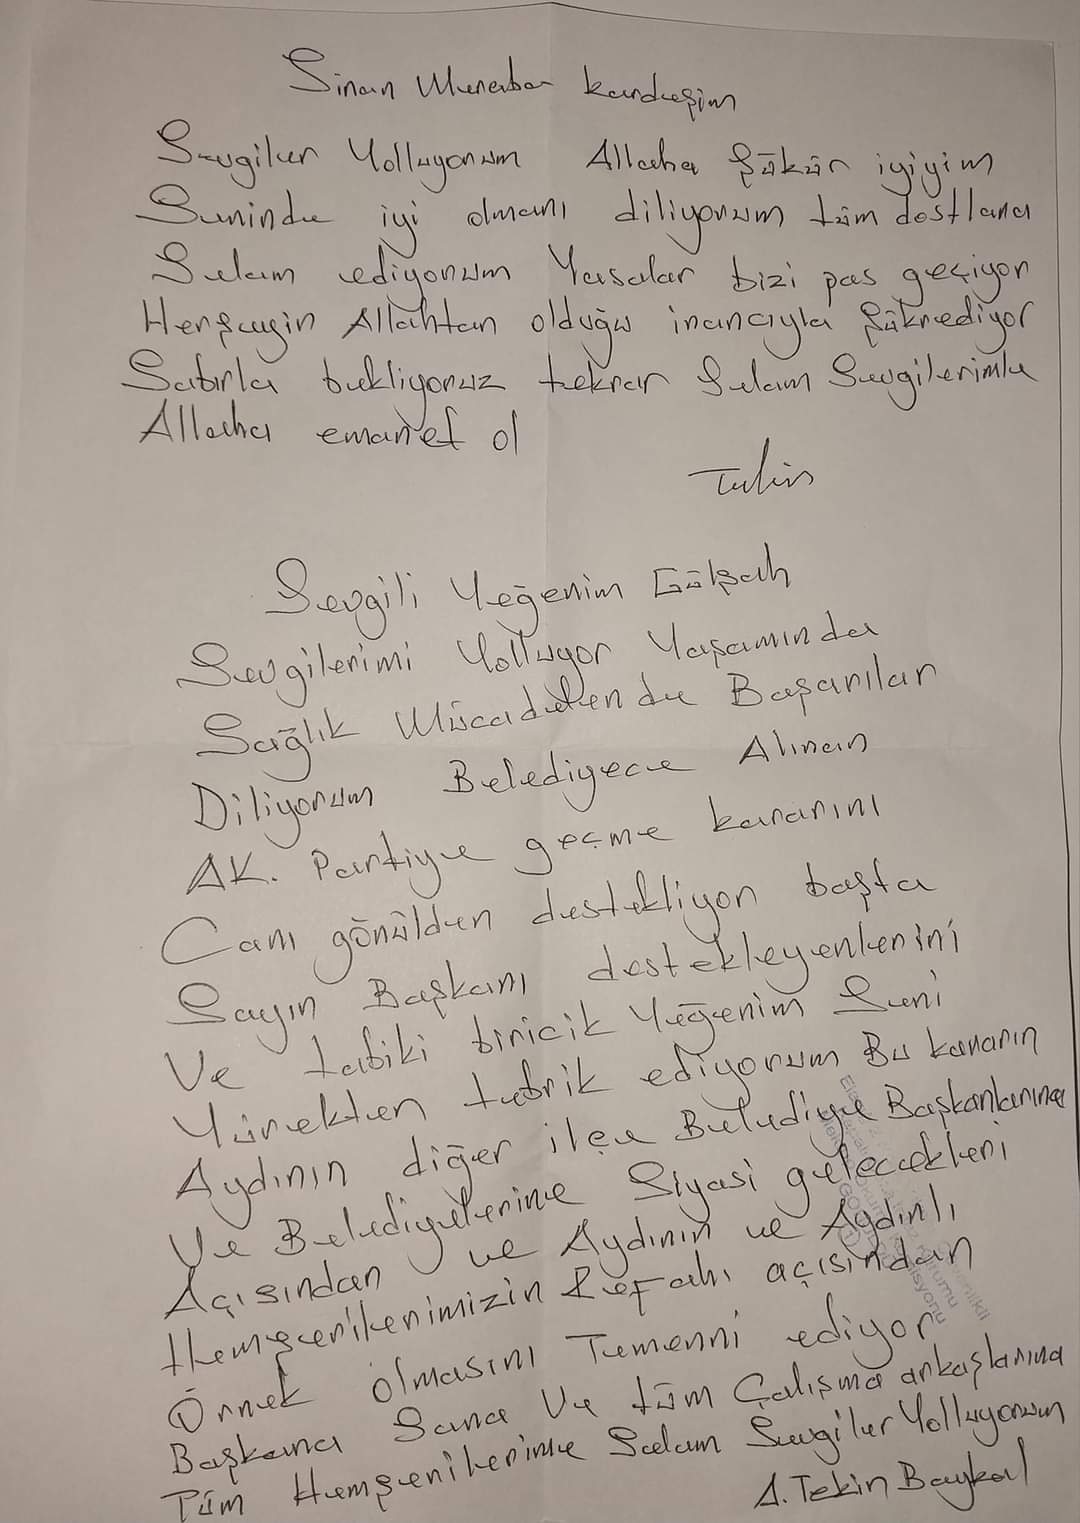 Sinan kardeşim
Sevgiler Yolluyorum Allaha Şükür iyiyim
Seninde iyi olmanı diliyorum tüm dostlara
Selam ediyorum Yasalar bizi pas geçiyor
Herşeyin Allahtan olduğu inancıyla Şükrediyor
Sabırla bekliyoruz tekrar Selam Sevgilerimle
Allaha emanet ol
Tekin
Sevgili Yeğenim Gülşah
Sevgilerimi Yolluyor Yaşamında
Sağlık Mücadelende Başarılar
Diliyorum Belediyece Alınan
AK. Partiye geçme kararını
Canı gönülden destekliyor başta
Sayın Başkanı destekleyenlerini
Ve tabiki biricik Yeğenim Seni
Yürekten tebrik ediyorum Bu kararın
Aydının diğer ilçe Belediye Başkanlarına
Ve Belediyelerine Siyasi gelecekleri
Açısından ve Aydının ve Aydınlı
Hemşerilerimizin Refahı açısından
Örnek olmasını Temenni ediyor
Başkana Sana Ve tüm Çalışma arkaşlarına
Tüm Hemşerilerime Selam Sevgiler Yolluyorum
A. Tekin Baykal